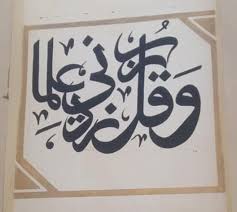 وَقُل رَبِّ زِدني عِلمًا